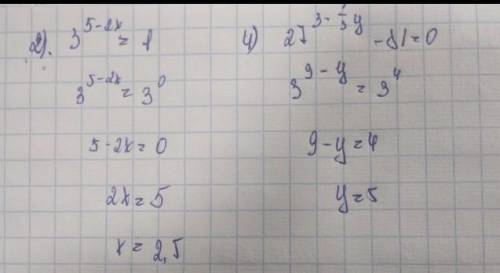 2). 3^{5-2x} = 1
3^{5-2x} = 3^0
5-2x=0
2x=5
x= 2,5
4) 27^{3-\frac{1}{3}y} -81=0
3^{9-y} = 3^4
9-y=4
y=5